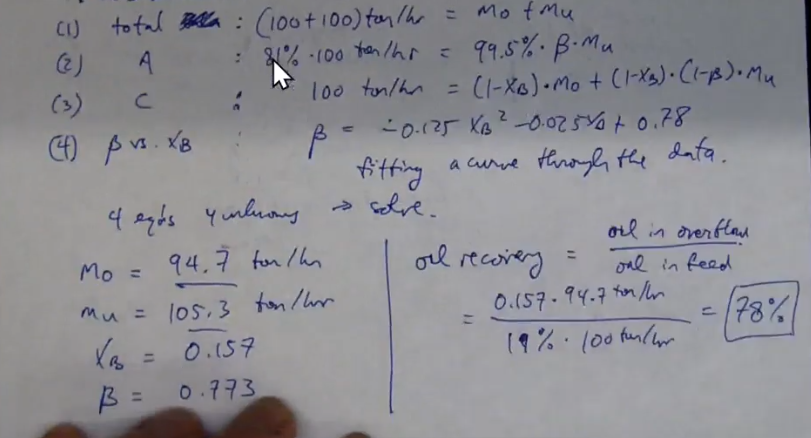 (1) total : (100+100) ton/hr = Mo + Mu
(2) A : 81% · 100 ton/hr = 99.5% · β · Mu
(3) C : 100 ton/hr = (1-XB) · Mo + (1-XB) · (1-β) · Mu
(4) β vs. XB : β = -0.125 XB² - 0.025XB + 0.78
fitting a curve through the data.
4 eqts 4 unknowns → solve.
Mo = 94.7 ton/hr
Mu = 105.3 ton/hr
XB = 0.157
β = 0.773
oil recovery = oil in overflow / oil in feed
= 0.157 · 94.7 ton/hr / 19% · 100 ton/hr = 78%